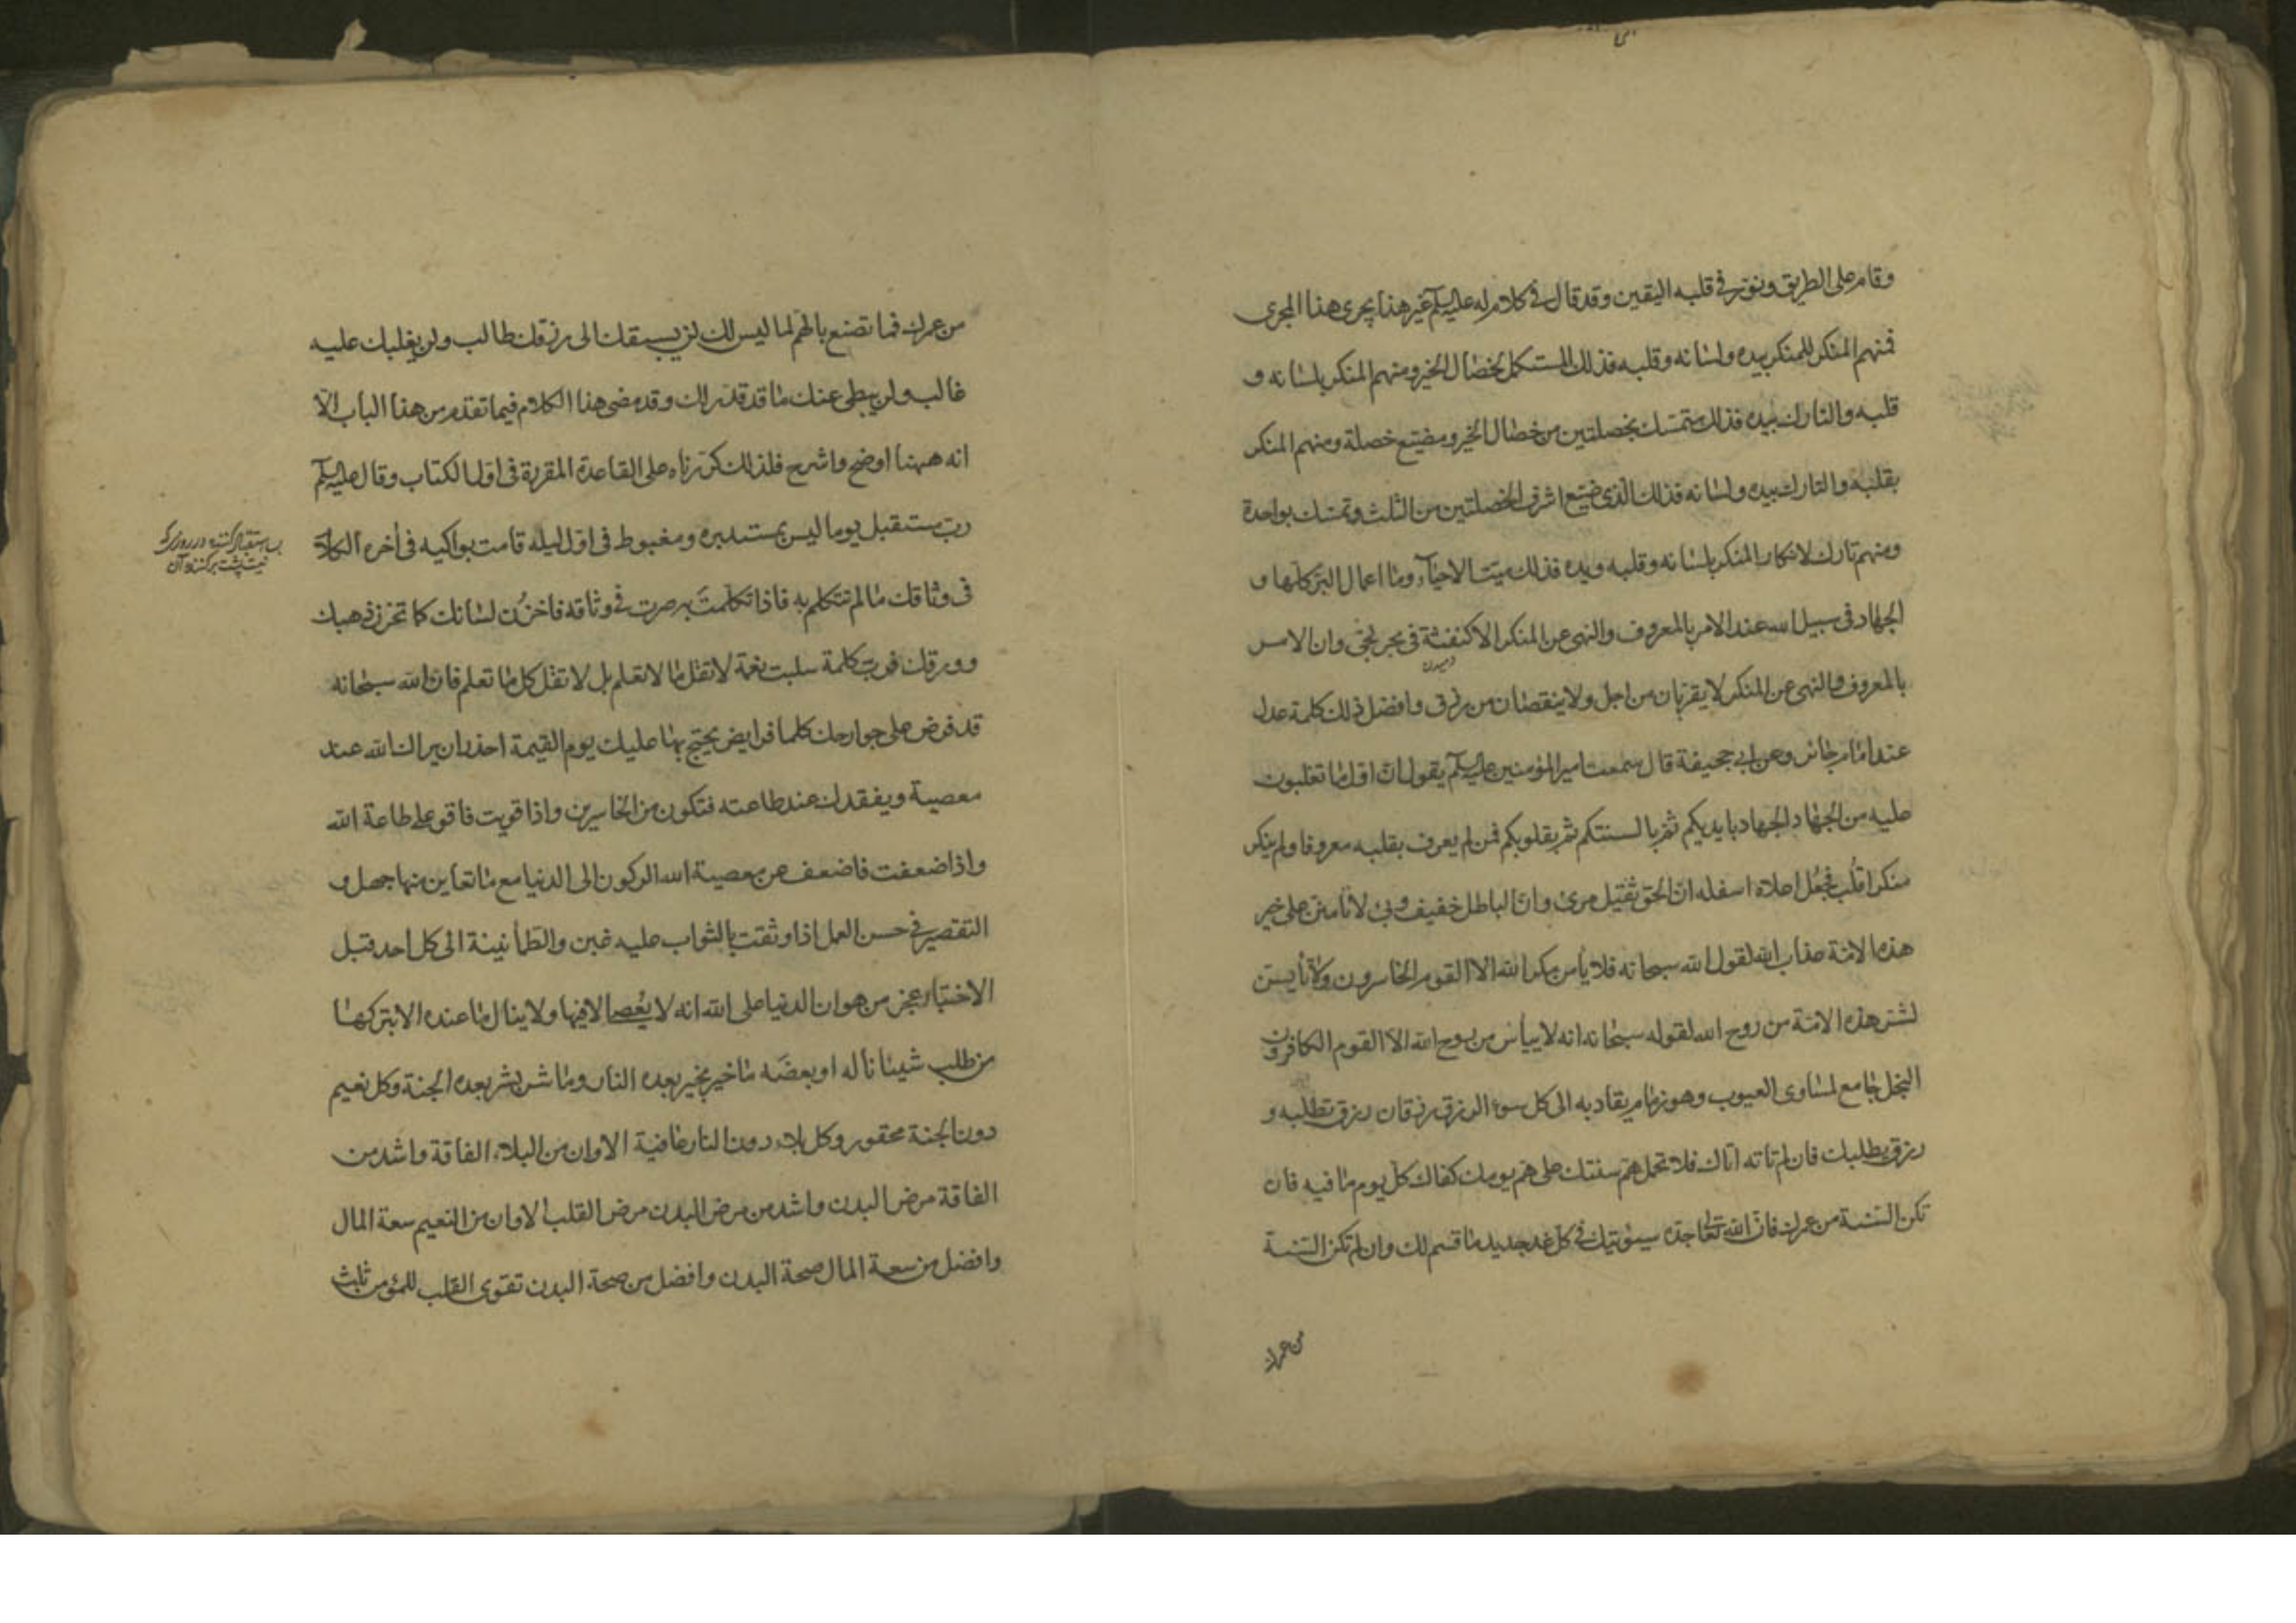 وقام على الطريق ونور في قلبه اليقين وقد قال في كلام له عليه السلم غير هذا يجرى هذا المجرى
فمنهم المنكر للمنكر بيده ولسانه وقلبه فذلك المستكمل لخصال الخير ومنهم المنكر بلسانه و
قلبه والتارك بيده فذلك متمسك بخصلتين من خصال الخير ومضيع خصلة ومنهم المنكر
بقلبه والتارك بيده ولسانه فذلك الذى ضيع اشرف الخصلتين من الثلث وتمسك بواحدة
ومنهم تارك لانكار المنكر بلسانه وقلبه ويده فذلك ميت الاحياء وما اعمال البر كلها و
الجهاد في سبيل الله عند الامر بالمعروف والنهى عن المنكر الا كنفثة في بحر لجى وان الامر
دمیدن
بالمعروف والنهى عن المنكر لا يقربان من اجل ولا ينقصان من رزق وافضل ذلك كلمة عدل
عند امام جائر وعن ابى جحيفة قال سمعت امير المؤمنين عليه السلم يقول ان اول ما تغلبون
عليه من الجهاد الجهاد بايديكم ثم بالسنتكم ثم بقلوبكم فمن لم يعرف بقلبه معروفا ولم ينكر
منكرا قلب فجعل اعلاه اسفله ان الحق ثقيل مرئ وان الباطل خفيف وبئ لا تأمنن على خير
هذه الامة عذاب الله لقول الله سبحانه فلا يأمن مكر الله الا القوم الخاسرون ولا تأيسن
لشر هذه الامة من روح الله لقوله سبحانه انه لا ييأس من روح الله الا القوم الكافرون
البخل جامع لمساوى العيوب وهو زمام يقاد به الى كل سوء الرزق رزقان رزق تطلبه و
رزق يطلبك فان لم تاته اتاك فلا تحمل هم سنتك على هم يومك كفاك كل يوم ما فيه فان
تكن السنة من عمرك فان الله تعالى جده سيؤتيك في كل غد جديد ما قسم لك وان لم تكن السنة
من عمرك
من عمرك فما تصنع بالهم لما ليس لك لن يسبقك الى رزقك طالب ولن يغلبك عليه
غالب ولن يبطئ عنك ما قد قدر لك وقد مضى هذا الكلام فيما تقدم من هذا الباب الا
انه ههنا اوضح واشرح فلذلك كررناه على القاعدة المقررة في اول الكتاب وقال عليه السلم
رب مستقبل يوما ليس بمستدبره ومغبوط في اول ليله قامت بواكيه في آخره الكلام
بسا استقبال کننده در روزی که
نیست پشت بر کننده آن
في وثاقك ما لم تتكلم به فاذا تكلمت به صرت في وثاقه فاخزن لسانك كما تخزن ذهبك
وورقك فرب كلمة سلبت نعمة لا تقل ما لا تعلم بل لا تقل كل ما تعلم فان الله سبحانه
قد فرض على جوارحك كلها فرايض يحتج بها عليك يوم القيمة احذر ان يراك الله عند
معصية ويفقدك عند طاعته فتكون من الخاسرين واذا قويت فاقو على طاعة الله
واذا ضعفت فاضعف عن معصية الله الركون الى الدنيا مع ما تعاين منها جهل و
التقصير في حسن العمل اذا وثقت بالثواب عليه غبن والطمأنينة الى كل احد قبل
الاختبار عجز من هوان الدنيا على الله انه لا يعصى الا فيها ولا ينال ما عنده الا بتركها
من طلب شيئا ناله او بعضه ما خير بخير بعده النار وما شر بشر بعده الجنة وكل نعيم
دون الجنة محقور وكل بلاء دون النار عافية الا وان من البلاء الفاقة واشد من
الفاقة مرض البدن واشد من مرض البدن مرض القلب الا وان من النعيم سعة المال
وافضل من سعة المال صحة البدن وافضل من صحة البدن تقوى القلب للمؤمن ثلث